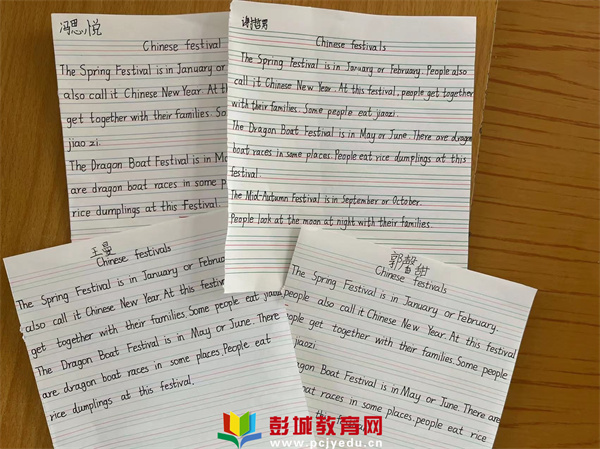 冯思悦
Chinese festival
The Spring Festival is in January or
also call it Chinese New Year. At th
get together with their families. So
jiao zi.
The Dragon Boat Festival is in Ma
are dragon boat races in some p
rice dumplings at this Festival.
Chinese festivals
The Spring Festival is in January or February. People also
call it Chinese New Year. At this festival, people get together
with their families. Some people eat jiaozi.
The Dragon Boat Festival is in May or June. There are dragon
boat races in some places. People eat rice dumplings at this
festival.
The Mid-Autumn Festival is in September or October.
People look at the moon at night with their families.
王曼
Chinese festivals
The Spring Festival is in January or Februa
also call it Chinese New Year. At this festiva
get together with their families. Some people eat jiaozi
The Dragon Boat Festival is in May or June. There
are dragon boat races in some places. People eat
rice dumplings at this festival.
郭智甜
Chinese festivals
The Spring Festival is in January or February.
people also call it Chinese New Year. At this festival
people get together with their families. Some people
jiaozi.
agon Boat Festival is in May or June. There are
oat races in some places. people eat rice
this
彭城教育网
www.pcjyedu.cn